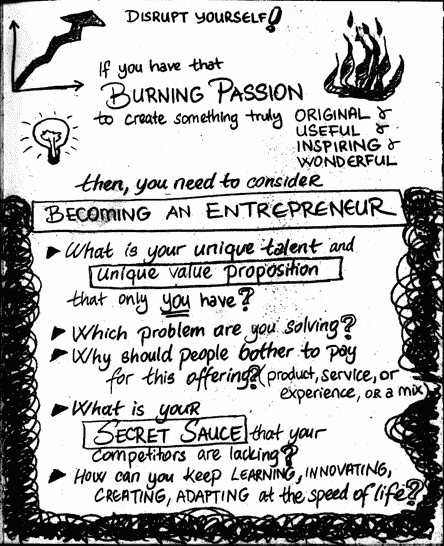 DISRUPT YOURSELF!
If you have that
BURNING PASSION
to create something truly ORIGINAL &
USEFUL &
INSPIRING &
WONDERFUL
then, you need to consider
BECOMING AN ENTREPRENEUR
▶ What is your unique talent and
unique value proposition
that only you have?
▶ Which problem are you solving?
▶ Why should people bother to pay
for this offering? (product, service, or
experience, or a mix)
▶ What is your
SECRET SAUCE that your
competitors are lacking?
▶ How can you keep LEARNING, INNOVATING,
CREATING, ADAPTING at the speed of life?